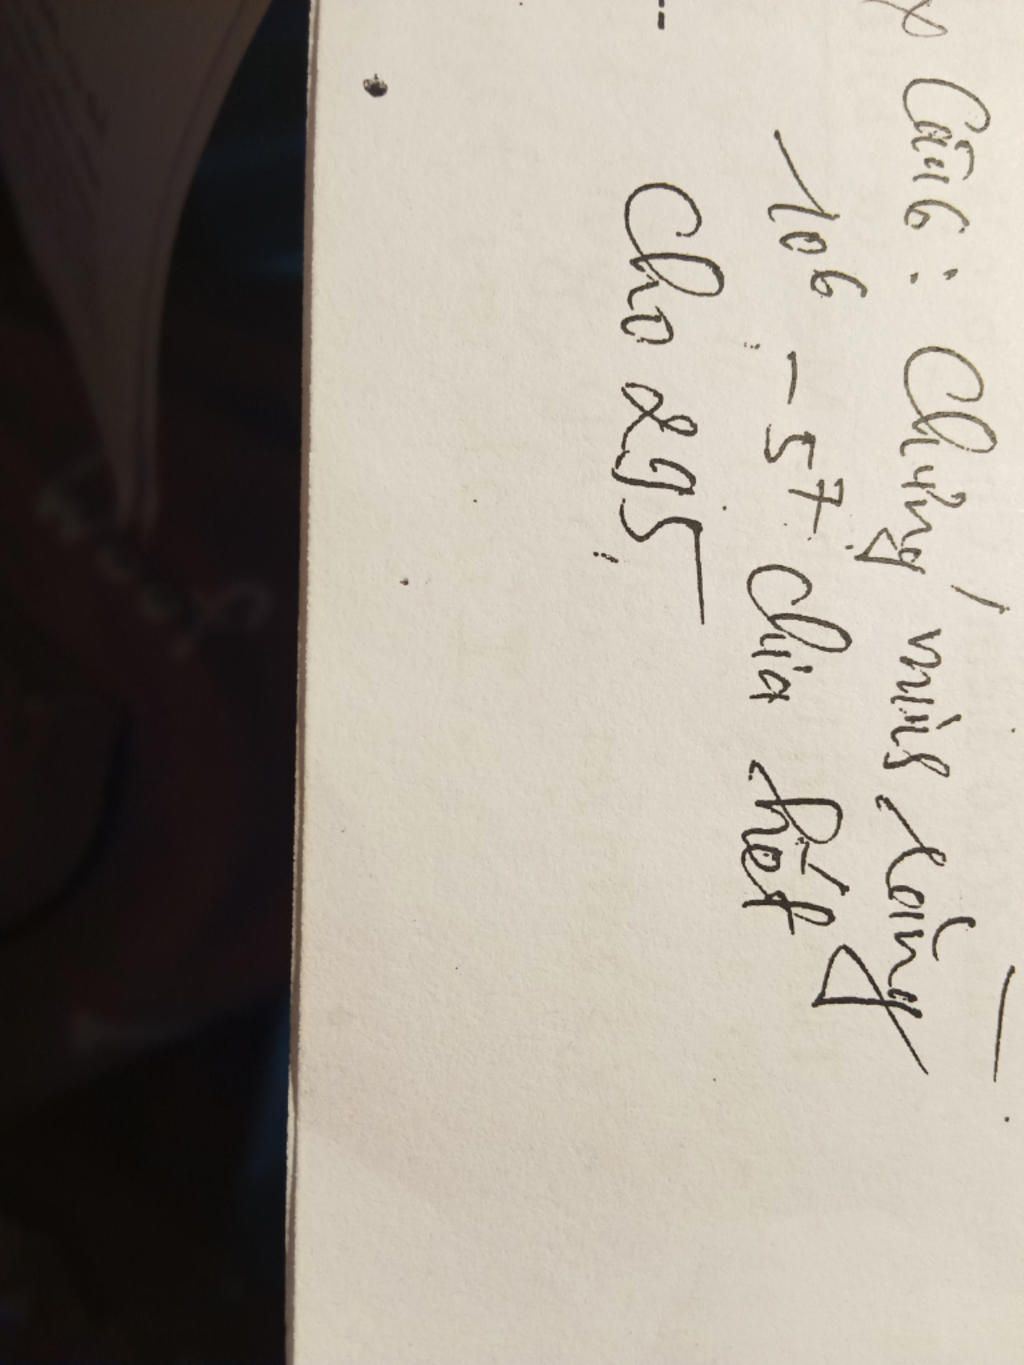 Câu 6: Chứng minh rằng
10⁶ - 5⁷ chia hết
cho 295